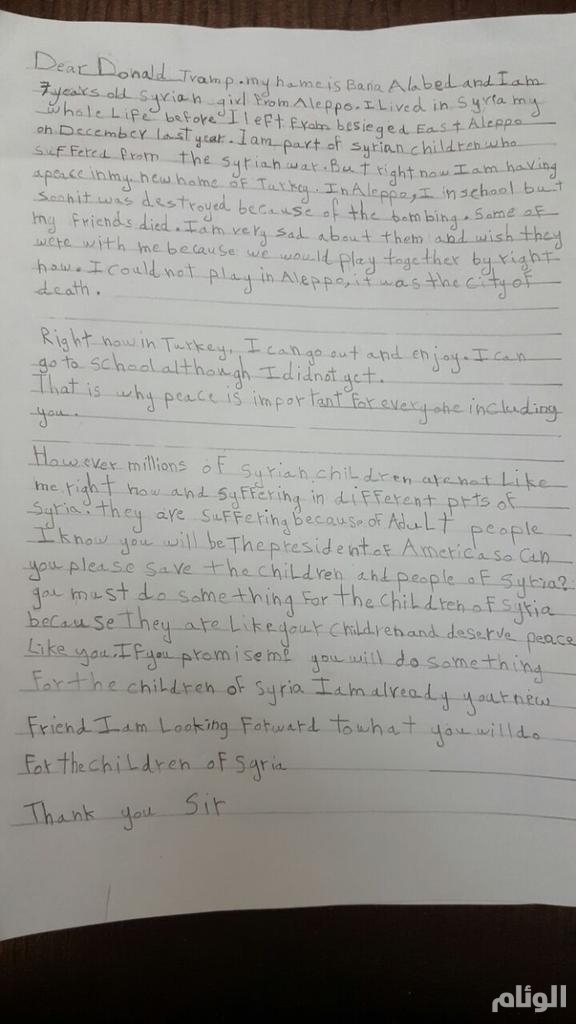 Dear Donald Tramp. my name is Bana Alabed and I am
7 years old Syrian girl from Aleppo. I Lived in Syria my
whole Life before I left from besieged East Aleppo
on December last year. I am part of Syrian children who
suffered from the Syrian war. But right now I am having
a peace in my new home of Turkey. In Aleppo, I in school but
soon it was destroyed because of the bombing. Some of
my friends died. I am very sad about them and wish they
were with me because we would play together by right
now. I could not play in Aleppo, it was the city of
death.
Right now in Turkey, I can go out and enjoy. I can
go to school although I didnot yet.
That is why peace is important for everyone including
you.
However millions of Syrian children are not Like
me right now and syffering in different prts of
Syria. they are suffering because of Adult people
I know you will be The president of America so can
you please save the children and people of Syria?
you must do something for the children of Syria
because They are Like your children and deserve peace
Like you If you promise me you will do something
for the children of Syria I am already your new
friend I am Looking forward to what you will do
for the children of Syria
Thank you Sir
الوئام